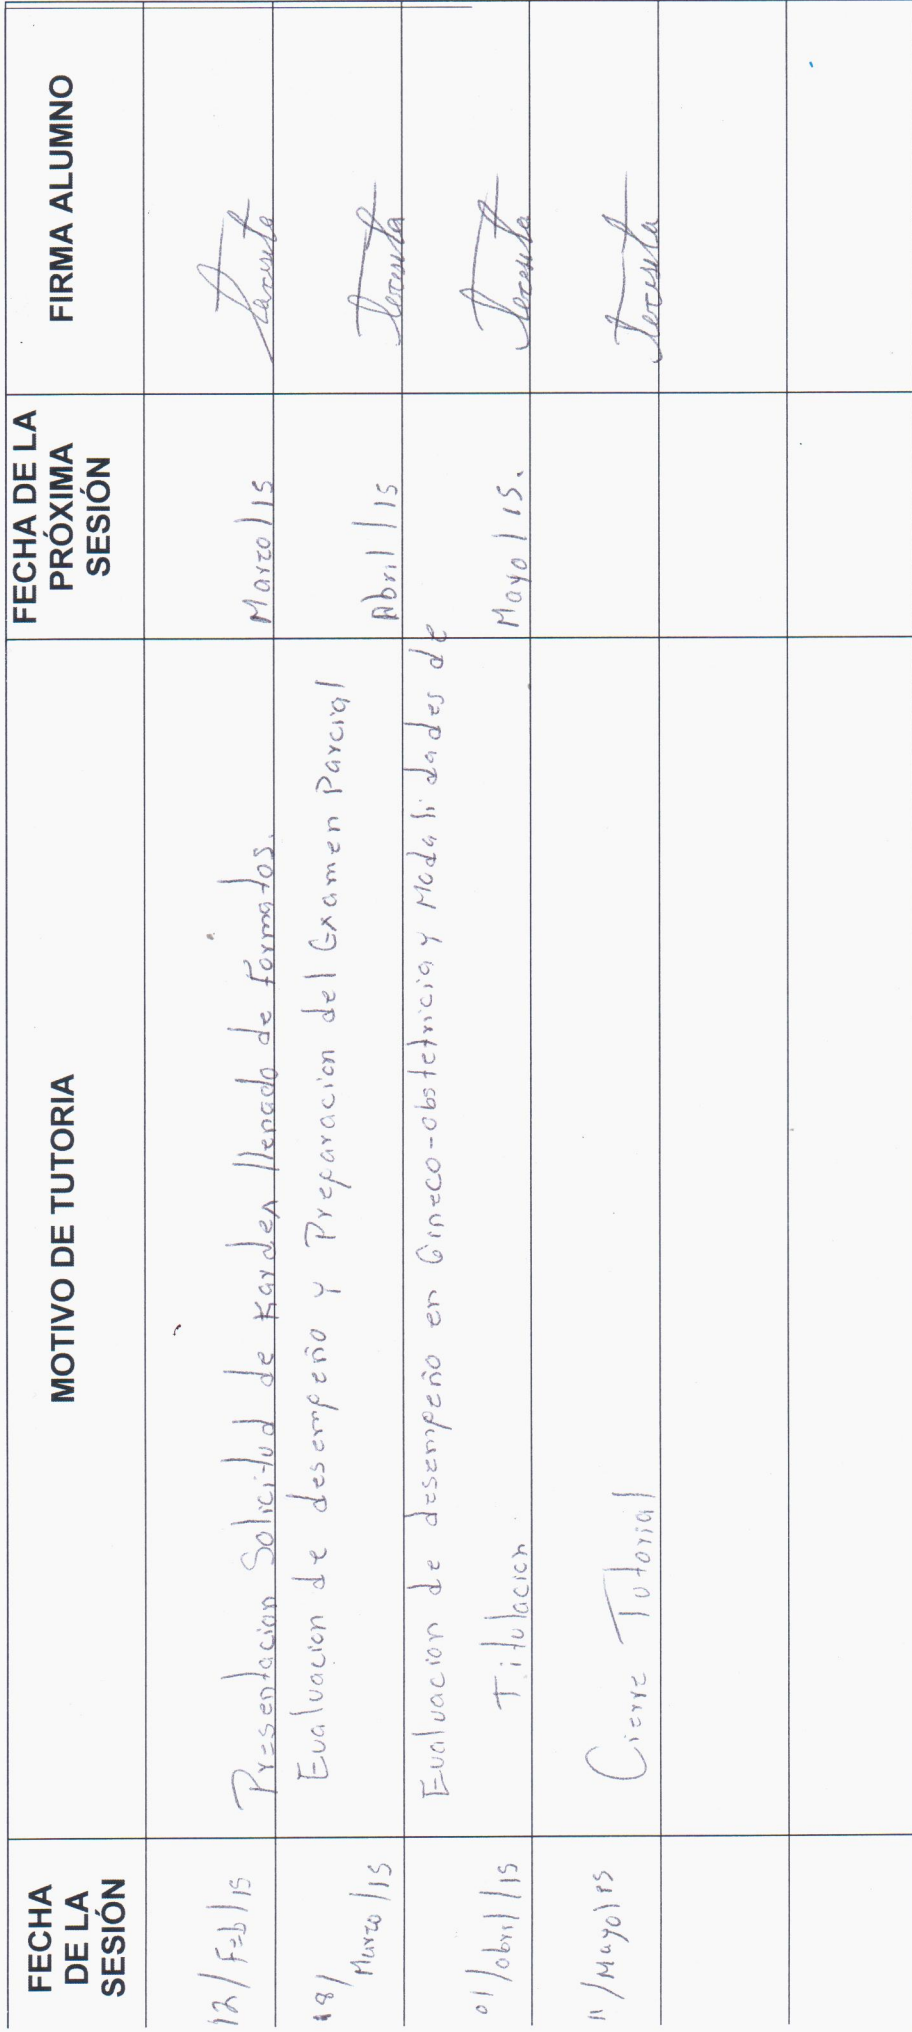 FECHA DE LA SESIÓN MOTIVO DE TUTORIA FECHA DE LA PRÓXIMA SESIÓN FIRMA ALUMNO
12/Feb/15 Presentacion Solicitud de Kardex llenado de Formatos. Marzo/15
18/Marzo/15 Evaluacion de desempeño y Preparacion del Examen Parcial Abril/15
01/abril/15 Evaluacion de desempeño en Gineco-obstetricia y Modalidades de Mayo/15.
Titulacion
11/Mayo/15 Cierre Tutorial